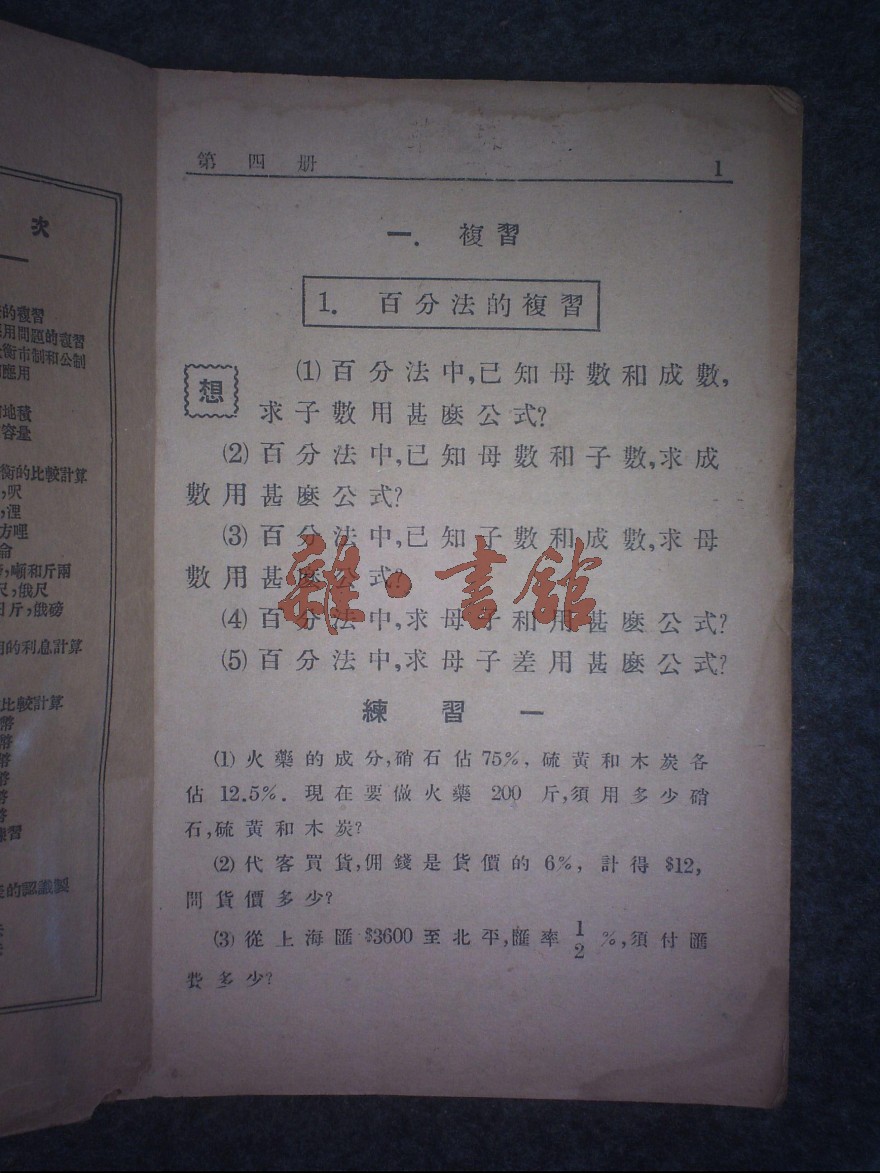 次
的複習
用問題的複習
衡市制和公制
應用
地積
容量
衡的比較計算
,呎
,浬
方哩
,噸和斤兩
尺,俄尺
日斤,俄磅
的利息計算
比較計算
幣
幣
幣
幣
幣
幣
習
的認識
第四册 1
一. 複習
1. 百分法的複習
想
(1)百分法中,已知母數和成數,
求子數用甚麼公式?
(2)百分法中,已知母數和子數,求成
數用甚麼公式?
(3)百分法中,已知子數和成數,求母
數用甚麼公式?
(4)百分法中,求母子和用甚麼公式?
(5)百分法中,求母子差用甚麼公式?
雜·書館
練習一
(1)火藥的成分,硝石佔75%,硫黃和木炭各
佔12.5%.現在要做火藥200斤,須用多少硝
石,硫黃和木炭?
(2)代客買貨,佣錢是貨價的6%,計得$12,
問貨價多少?
(3)從上海匯$3600至北平,匯率1/2%,須付匯
費多少?